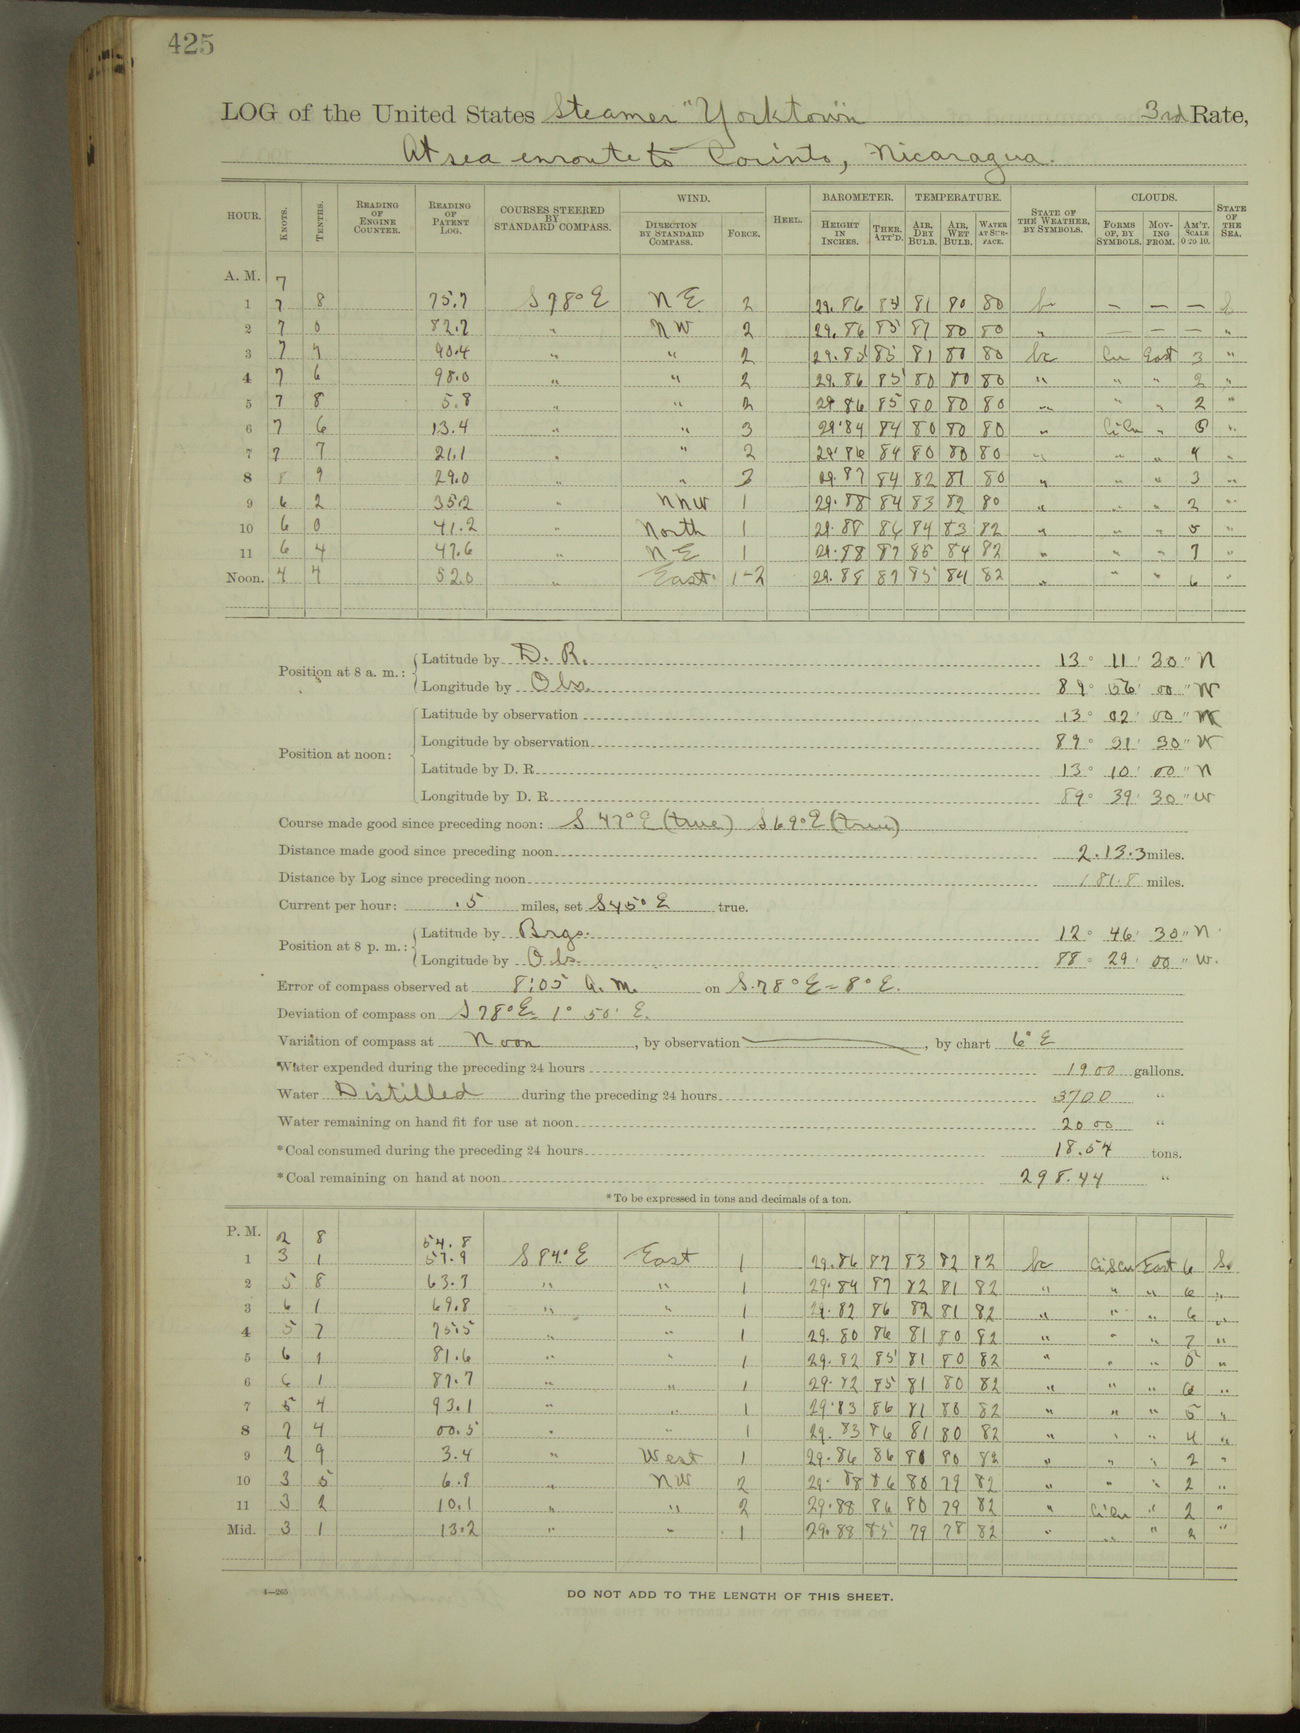 425
LOG of the United States Steamer "Yorktown" 3rd Rate,
At sea enroute to Corinto, Nicaragua.
HOUR. KNOTS. TENTHS. READING OF ENGINE COUNTER. READING OF PATENT LOG. COURSES STEERED BY STANDARD COMPASS. WIND. DIRECTION BY STANDARD COMPASS. FORCE. HEEL. BAROMETER. HEIGHT IN INCHES. THER. ATT'D. TEMPERATURE. AIR, DRY BULB. AIR, WET BULB. WATER AT SURFACE. STATE OF THE WEATHER, BY SYMBOLS. CLOUDS. FORMS OF, BY SYMBOLS. MOVING FROM. AM'T. SCALE 0 TO 10. STATE OF THE SEA.
A. M. 7
1 7 8 75.7 S 78° E NE 2 29.86 84 81 80 80 b — — —
2 7 0 82.7 " NW 2 29.86 85 81 80 80 " — — — "
3 7 7 90.4 " " 2 29.85 85 81 80 80 bc Cu East 3 "
4 7 6 98.0 " " 2 29.86 85 80 80 80 " " " 2 "
5 7 8 5.8 " " 2 29.86 85 80 80 80 " " " 2 "
6 7 6 13.4 " " 3 29.84 84 80 80 80 " CiCu " "
7 7 7 21.1 " " 2 29.86 84 80 80 80 " " " 4 "
8 9 29.0 " " 29.87 84 82 81 80 " " " 3 "
9 6 2 35.2 " NNW 1 29.88 84 83 82 80 " " " 3 "
10 6 0 41.2 " North 1 29.88 86 84 83 82 " " " 5 "
11 6 4 47.6 " NE 1 29.88 87 85 84 82 " " " 7 "
Noon. 4 4 52.0 " East 1-2 29.88 87 85 84 82 " " " 6 "
Position at 8 a. m.: Latitude by D. R. 13° 11' 30" N
Longitude by Obs. 89° 56' 00" W
Position at noon: Latitude by observation 13° 02' 00" N
Longitude by observation 89° 31' 30" W
Latitude by D. R. 13° 10' 00" N
Longitude by D. R. 89° 39' 30" W
Course made good since preceding noon: S 47° E (true) S 69° E (true)
Distance made good since preceding noon 2.13.3 miles.
Distance by Log since preceding noon 181.8 miles.
Current per hour: .5 miles, set S 45° E true.
Position at 8 p. m.: Latitude by Brgs. 12° 46' 30" N
Longitude by Obs. 88° 29' 00" W.
Error of compass observed at 8:05 A. M. on S. 78° E = 8° E.
Deviation of compass on S 78° E = 1° 50' E.
Variation of compass at Noon, by observation —, by chart 6° E
*Water expended during the preceding 24 hours 1900 gallons.
Water Distilled during the preceding 24 hours 3700 "
Water remaining on hand fit for use at noon 2000 "
*Coal consumed during the preceding 24 hours 18.54 tons.
*Coal remaining on hand at noon 298.44 "
*To be expressed in tons and decimals of a ton.
P. M. 2 8 54.8
1 3 1 57.9 S 84° E East 1 29.86 87 83 82 82 bc CiSCu East 6 S.
2 5 8 63.7 " " 1 29.84 87 82 81 82 " " " 6 "
3 6 1 69.8 " " 1 29.82 86 82 81 82 " " " 6 "
4 5 7 75.5 " " 1 29.80 86 81 80 82 " " " 7 "
5 6 1 81.6 " " 1 29.82 85 81 80 82 " " " 5 "
6 6 1 87.7 " " 1 29.82 85 81 80 82 " " " 6 "
7 5 4 93.1 " " 1 29.83 86 81 80 82 " " " 5 "
8 7 4 00.5 " " 1 29.83 86 81 80 82 " " " 4 "
9 2 9 3.4 " West 1 29.86 86 80 80 82 " " " 2 "
10 3 5 6.9 " NW 2 29.88 86 80 79 82 " " " 2 "
11 3 2 10.1 " " 2 29.88 86 80 79 82 " CiCu " 2 "
Mid. 3 1 13.2 " " 1 29.88 85 79 78 82 " " " 2 "
4—265
DO NOT ADD TO THE LENGTH OF THIS SHEET.